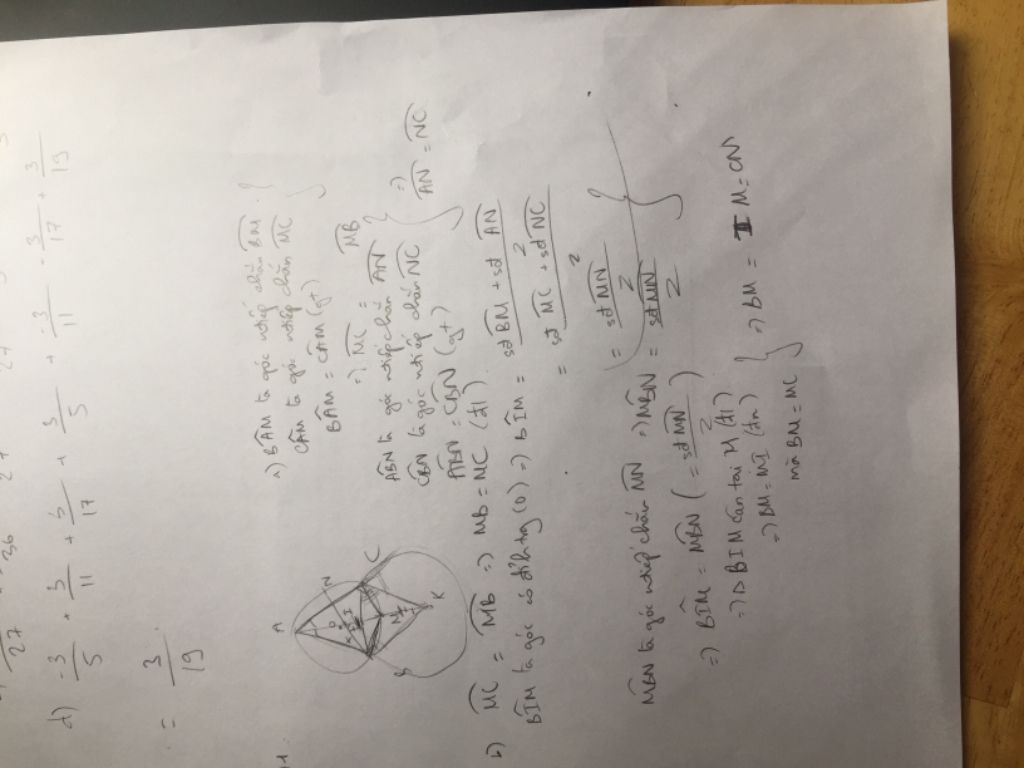 27 36 27 27 5
d) -3/5 + 3/11 + 3/17 + 3/5 + -3/11 - 3/17 + 3/19
= 3/19
A
N
I
C
K
a) BÂM là góc nội tiếp chắn BM
CÂM là góc nội tiếp chắn MC
BÂM = CÂM (gt)
=> MC = MB
ABN là góc nội tiếp chắn AN
CBN là góc nội tiếp chắn NC
ABN = CBN (gt)
=> AN = NC
b) MC = MB => MB = MC (đl)
BIM là góc có đỉnh trong (O) => BIM = sđ BM + sđ AN / 2
= sđ MC + sđ NC / 2
= sđ MN / 2
MBN là góc nội tiếp chắn MN => MBN = sđ MN / 2
=> BIM = MBN (= sđ MN / 2)
=> Δ BIM cân tại M (đl)
=> BM = MI (đn)
mà BM = MC
=> BM = IM = CM